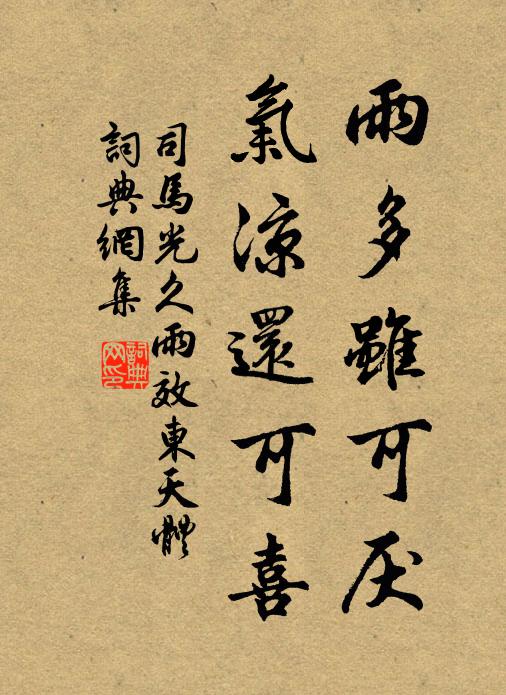 雨多雖可厌
氣涼還可喜
司馬光久雨效東天體
詞典網集
詞典网印